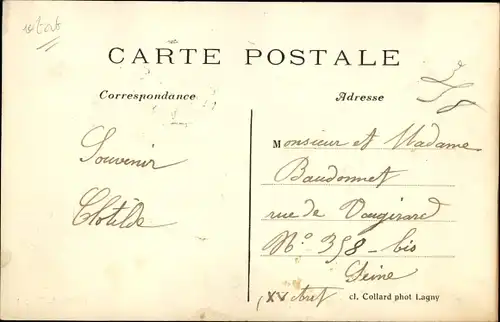 CARTE POSTALE
Correspondance
Adresse
358
Souvenir
Clotilde
Monsieur et Madame
Baudonnet
rue de Vaugirard
N° 358 - bis
Seine
XV
cl. Collard phot Lagny